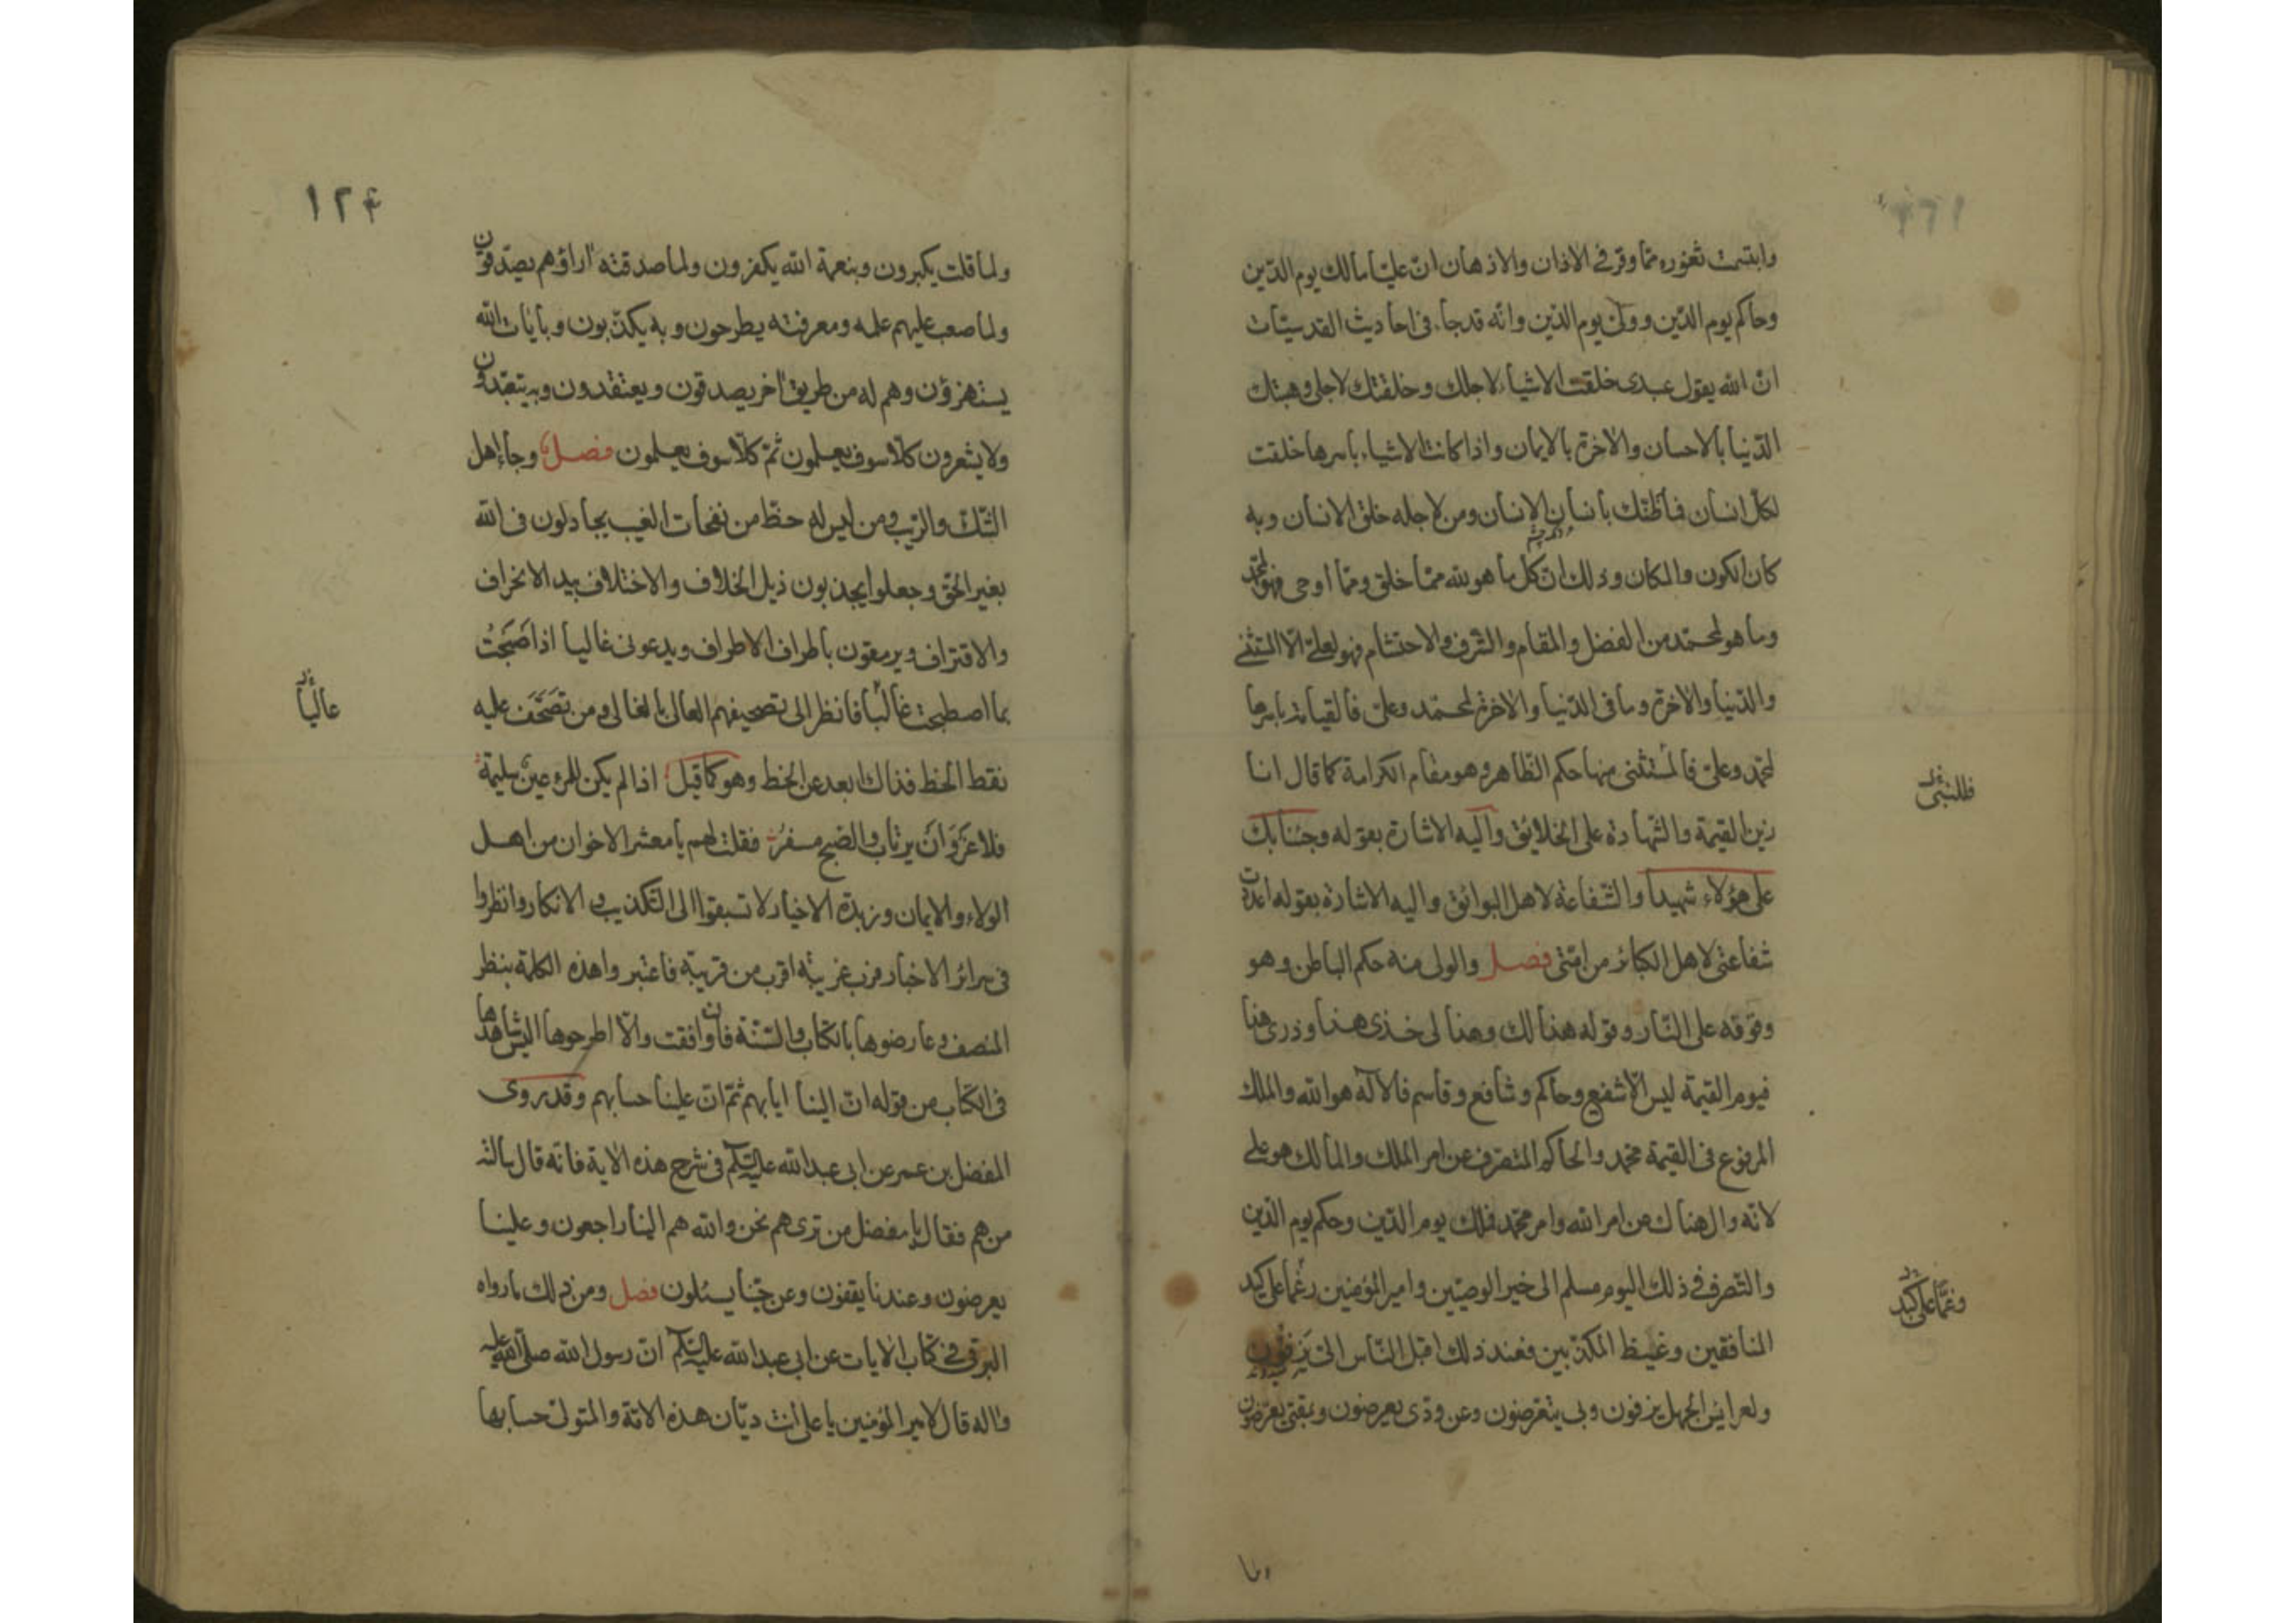 وابتسمت ثغوره مما وقر في الاذان والاذهان ان عليا مالك يوم الدين
وحاكم يوم الدين وولى يوم الدين وانه قد جاء فى احاديث القدسيات
ان الله يقول عبدى خلقت الاشياء لاجلك وخلقتك لاجلى وهبتك
الدنيا بالاحسان والاخرة بالايمان واذا كانت الاشياء باسرها خلقت
لكل انسان فما ظنك بانسان الانسان ومن لاجله خلق الانسان وبه
كان الكون والمكان وذلك ان كل ما هو لله مما خلق ومما اوحى فهو لمحمد
وما هو لمحمد من الفضل والمقام والشرف والاحتشام فهو لعلى الا المستثنى
والدنيا والاخرة وما فى الدنيا والاخرة لمحمد وعلى فالقيامة باسرها
لمحمد وعلى فالمستثنى منها حكم الظاهر وهو مقام الكرامة كما قال انا
زين القيمة والشهادة على الخلايق واليه الاشارة بقوله وجئنا بك
على هؤلاء شهيدا والشفاعة لاهل البوائق واليه الاشارة بقوله اعددت
شفاعتى لاهل الكبائر من امتى فصل والولى منه حكم الباطن وهو
وقوفه على النار وقوله هذا لك وهذا لى خذى هذا وذرى هذا
فيوم القيمة ليس الا شفيع وحاكم وشافع وقاسم فالاله هو الله والملك
المرفوع فى القيمة محمد والحاكم المتصرف عن امر الملك والمالك هو على
لانه وال هناك عن امر الله وامر محمد فملك يوم الدين وحكم يوم الدين
والتصرف فى ذلك اليوم مسلم الى خير الوصيين وامير المؤمنين رغما على كيد
المنافقين وغيظ المكذبين فعند ذلك اقبل الناس الى يزفون
ولعرايس الجهل يزفون ولى يتعرضون وعن ودى يعرضون وبمقتى يعرضون
وغما على كيد
ولما
١٢٤
ولما قلت يكبرون وبنعمة الله يكفرون ولما صدقته اراؤهم يصدقون
ولما صعب عليهم علمه ومعرفته يطرحون وبه يكذبون وبايات الله
يستهزؤن وهم له من طريق اخر يصدقون ويعتقدون وبه يتعبدون
ولا يشعرون كلا سوف يعلمون ثم كلا سوف يعلمون فصل وجاء اهل
الشك والريب ومن ليس له حظ من نفحات الغيب يجادلون فى الله
بغير الحق وجعلوا يجذبون ذيل الخلاف والاختلاف بيد الانحراف
والاقتراف ويرمقون باطراف الاطراف ويدعونى غاليا اذ اصبحت
بما اصطبحت غالبا فانظر الى تصحيفهم العالى بالغالى ومن تصحف عليه
عاليا
نقط الخط فذاك ابعد عن الحظ وهو كما قيل اذا لم يكن للمرء عين سليمة
فلا غرو ان يرتاب والصبح مسفر فقلت لهم يا معشر الاخوان من اهل
الولاء والايمان وزبدة الاخيار لا تسبقوا الى التكذيب والانكار وانظروا
فى سرائر الاخبار فرب غريبة اقرب من قريبة فاعتبروا هذه الكلمة بنظر
المنصف وعارضوها بالكتاب والسنة فان وافقت والا اطرحوها اليس شاهدها
فى الكتاب من قوله ان الينا ايابهم ثم ان علينا حسابهم وقد روى
المفضل بن عمر عن ابى عبد الله عليه السلام فى شرح هذه الاية فانه قال بالله
من هم فقال يا مفضل من ترى هم نحن والله هم الينا راجعون وعلينا
يعرضون وعندنا يقفون وعن حبنا يسئلون فصل ومن ذلك ما رواه
البرقى فى كتاب الايات عن ابى عبد الله عليه السلام ان رسول الله صلى الله عليه
واله قال لامير المؤمنين يا على انت ديان هذه الامة والمتولى حسابها